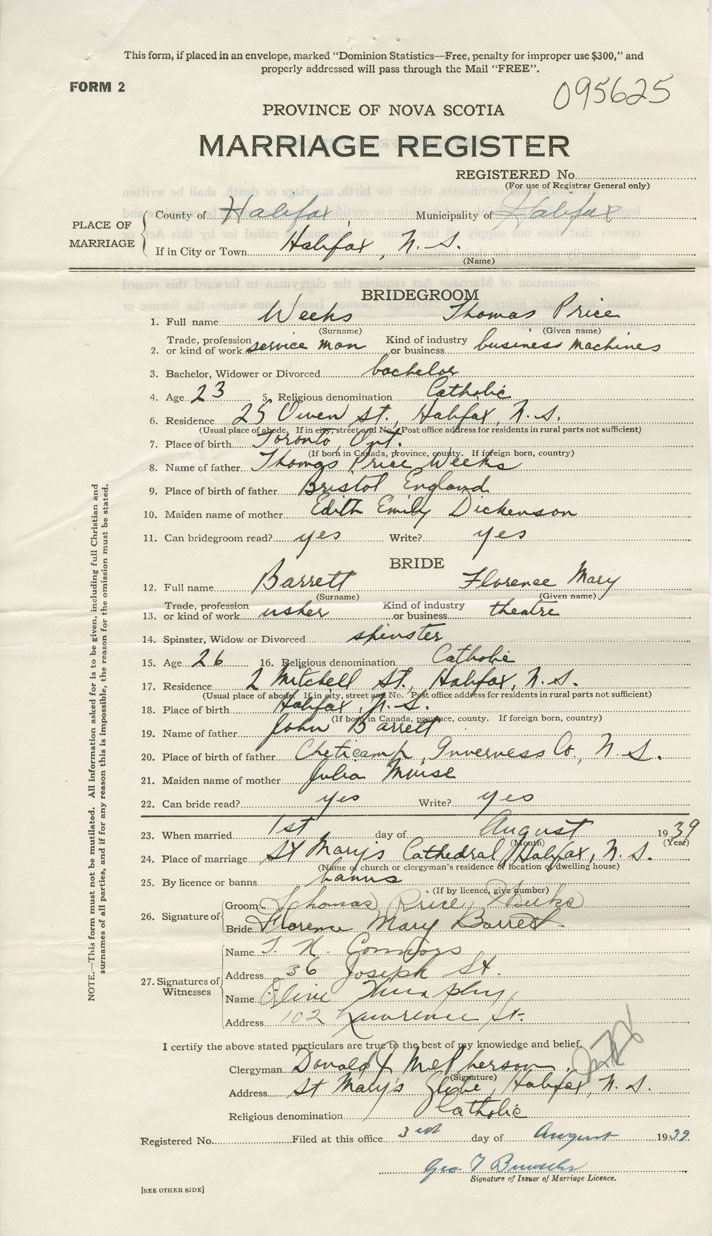 This form, if placed in an envelope, marked "Dominion Statistics—Free, penalty for improper use $300," and
properly addressed will pass through the Mail "FREE".
FORM 2
095625
PROVINCE OF NOVA SCOTIA
MARRIAGE REGISTER
REGISTERED No.
(For use of Registrar General only)
PLACE OF MARRIAGE
County of Halifax, Municipality of Halifax
If in City or Town Halifax, N.S.
(Name)
BRIDEGROOM
1. Full name Weeks Thomas Price
(Surname) (Given name)
2. Trade, profession or kind of work service man Kind of industry or business business machines
3. Bachelor, Widower or Divorced bachelor
4. Age 23 5. Religious denomination Catholic
6. Residence 25 Owen St., Halifax, N.S.
(Usual place of abode. If in city, street and No. Post office address for residents in rural parts not sufficient)
7. Place of birth Toronto, Ont.
(If born in Canada, province, county. If foreign born, country)
8. Name of father Thomas Price Weeks
9. Place of birth of father Bristol England
10. Maiden name of mother Edith Emily Dickenson
11. Can bridegroom read? yes Write? yes
BRIDE
12. Full name Barrett Florence Mary
(Surname) (Given name)
13. Trade, profession or kind of work usher Kind of industry or business theatre
14. Spinster, Widow or Divorced spinster
15. Age 26 16. Religious denomination Catholic
17. Residence 2 Mitchell St., Halifax, N.S.
(Usual place of abode. If in city, street and No. Post office address for residents in rural parts not sufficient)
18. Place of birth Halifax, N.S.
(If born in Canada, province, county. If foreign born, country)
19. Name of father John Barrett
20. Place of birth of father Cheticamp, Inverness Co., N.S.
21. Maiden name of mother Julia Muise
22. Can bride read? yes Write? yes
23. When married 1st day of August 1939
(Month) (Year)
24. Place of marriage St Mary's Cathedral, Halifax, N.S.
(Name of church or clergyman's residence or location of dwelling house)
25. By licence or banns banns
(If by licence, give number)
26. Signature of
Groom Thomas Price Weeks
Bride Florence Mary Barrett
27. Signatures of Witnesses
Name Connors
Address 36 Joseph St.
Name Olive Murphy
Address 102 Lawrence St.
I certify the above stated particulars are true to the best of my knowledge and belief.
Clergyman Donald J McPherson
(Signature)
Address St Mary's Glebe, Halifax, N.S.
Religious denomination Catholic
Registered No. Filed at this office 3rd day of August 1939
Geo T
Signature of Issuer of Marriage Licence.
[SEE OTHER SIDE]
NOTE.—This form must not be mutilated. All information asked for is to be given, including full Christian and
surnames of all parties, and if for any reason this is impossible, the reason for the omission must be stated.